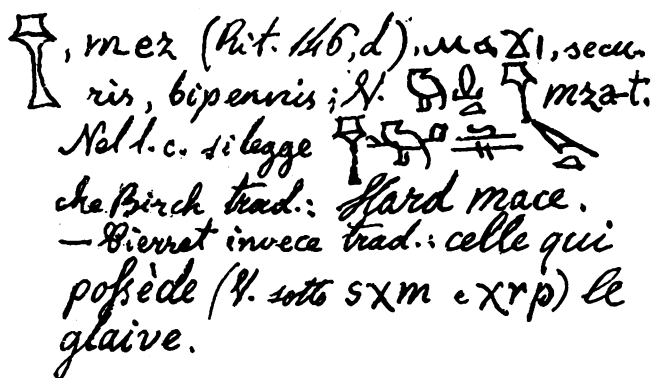 , mez (Rit. 146, d). μαχι, secu-
ris, bipennis; V. mza-t.
Nel l. c. si legge
che Birch trad.: Hard mace.
— Pierret invece trad.: celle qui
possède (V. sotto sχm e χrp) le
glaive.